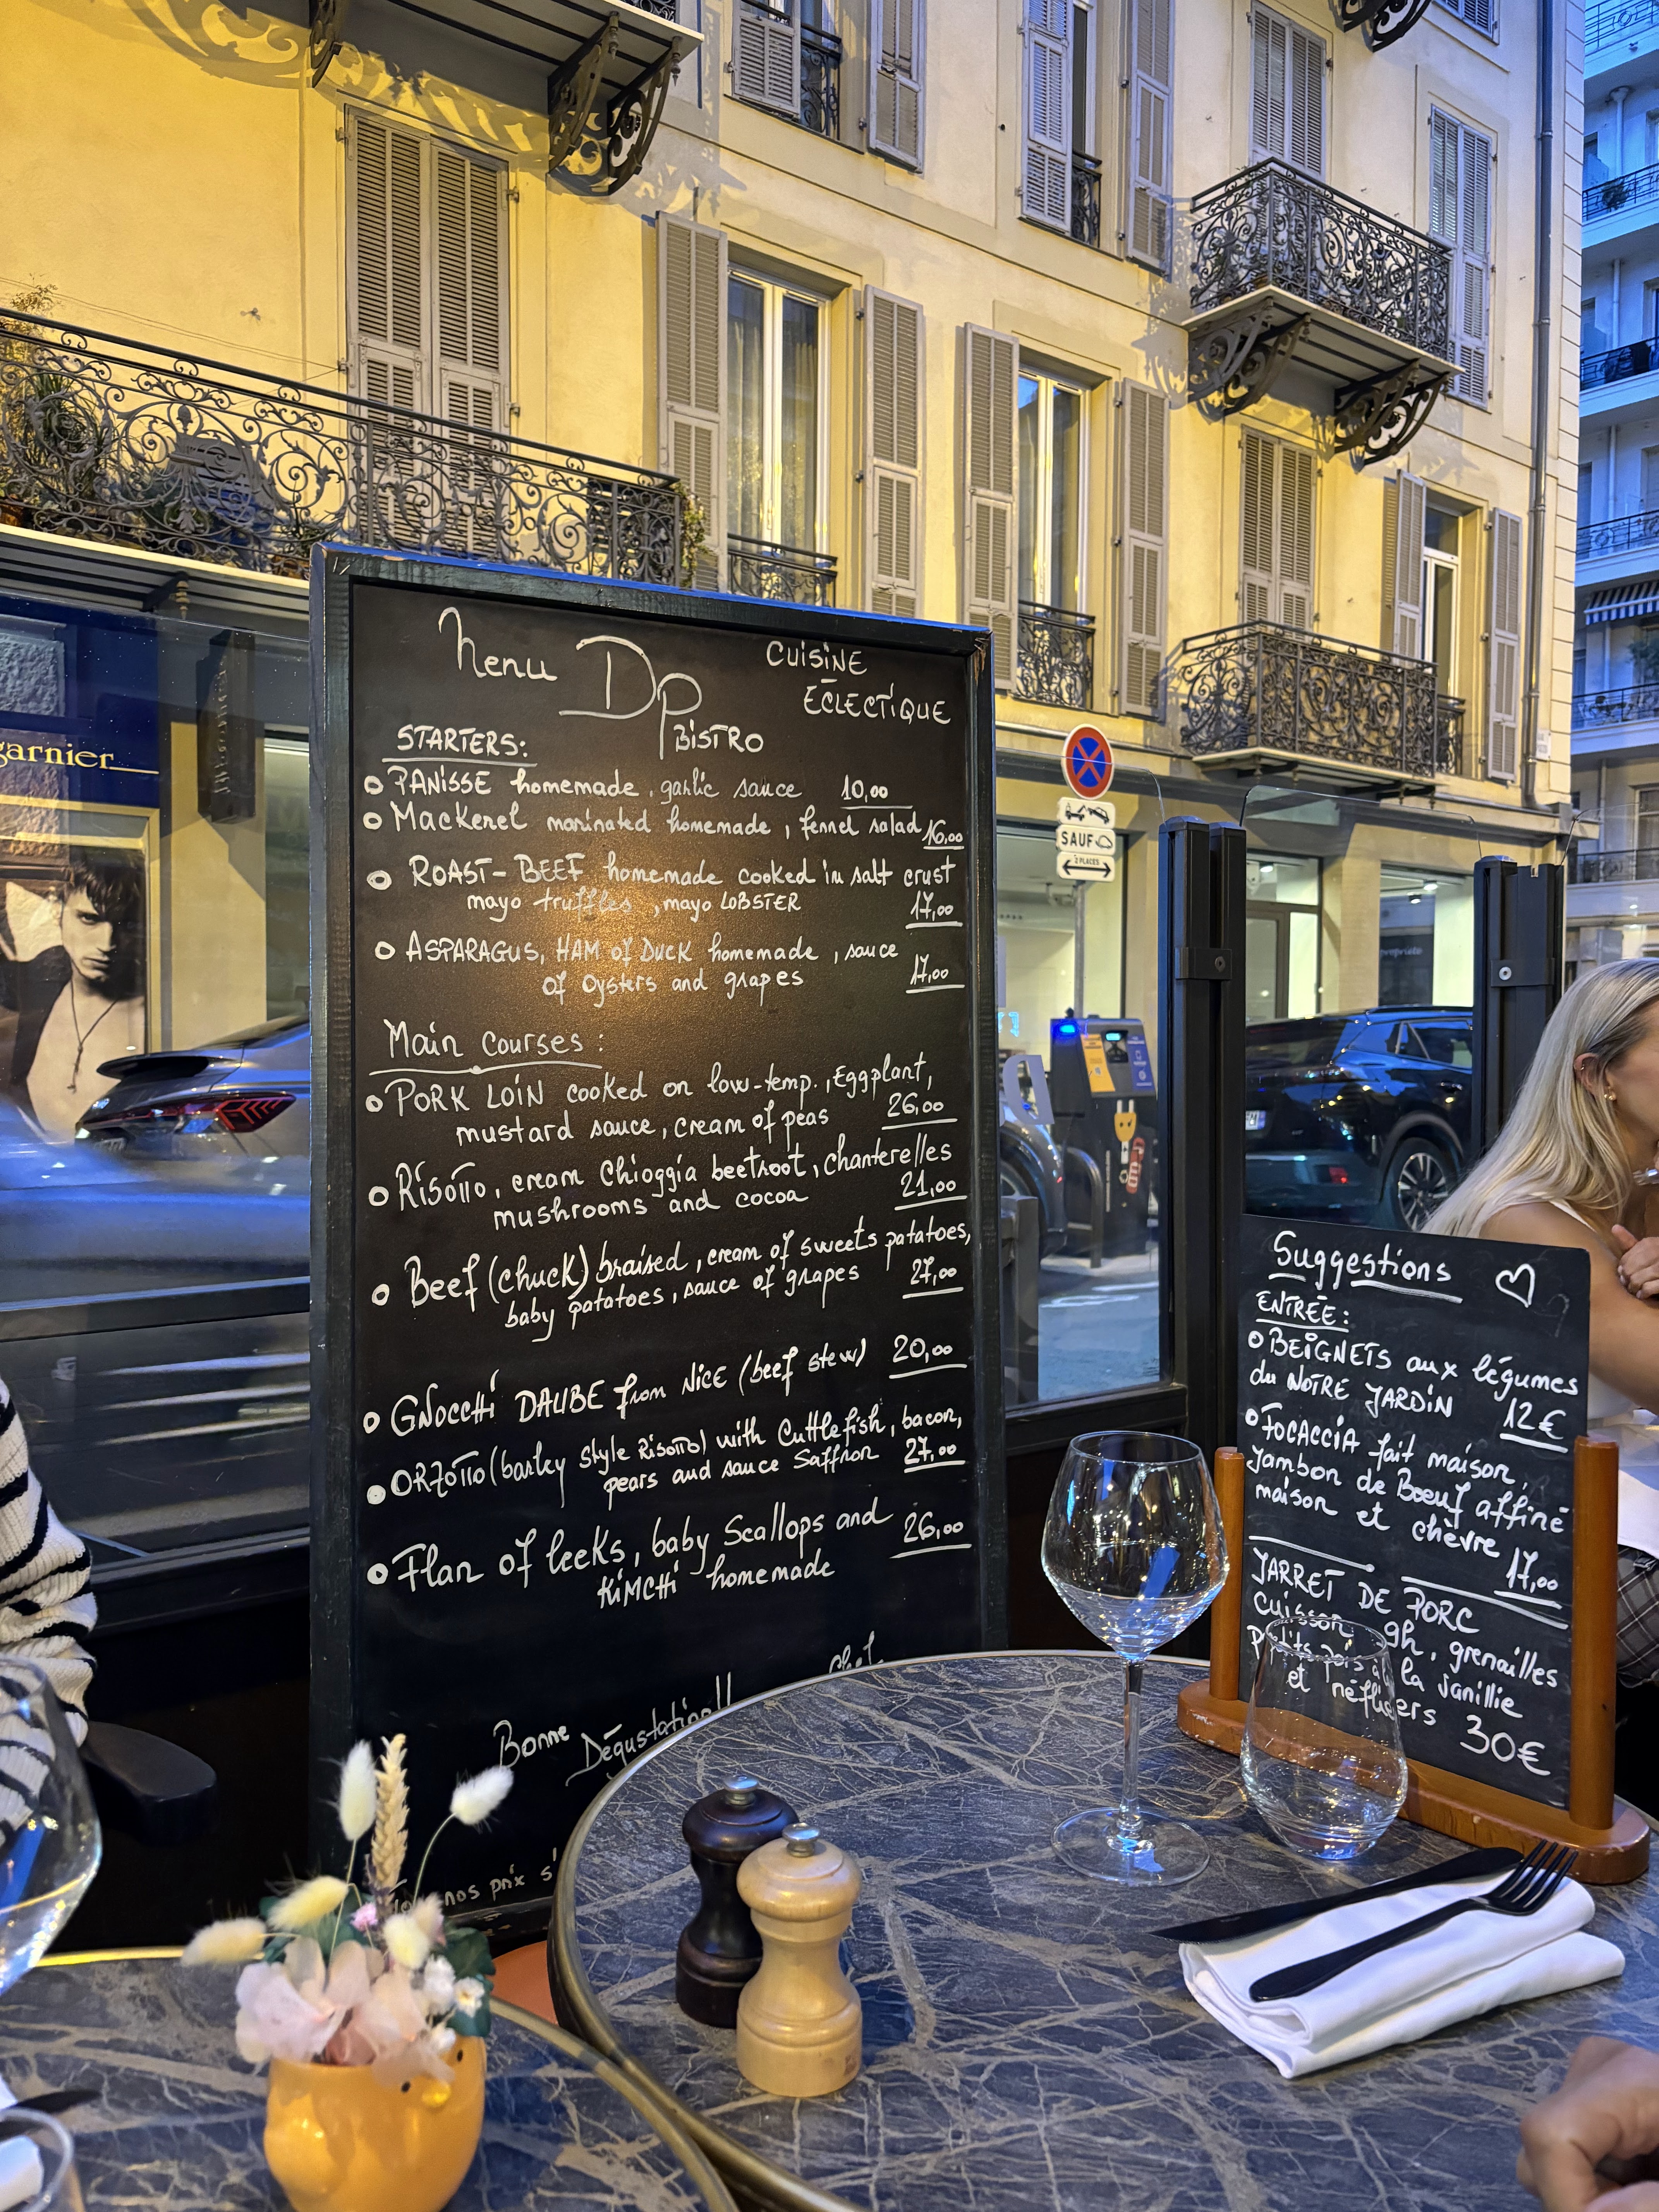 Menu DP BISTRO
CUISINE
ECLECTIQUE
STARTERS:
PANISSE homemade, garlic sauce 10,00
Mackerel marinated homemade, fennel salad 16,00
ROAST-BEEF homemade cooked in salt crust
mayo truffles, mayo LOBSTER 17,00
ASPARAGUS, HAM of DUCK homemade, sauce
of Oysters and grapes 17,00
Main Courses:
PORK LOIN cooked on low-temp., Eggplant,
mustard sauce, cream of peas 26,00
Risotto, cream Chioggia beetroot, chanterelles
mushrooms and cocoa 21,00
Beef (chuck) braised, cream of sweets patatoes,
baby patatoes, sauce of grapes 27,00
GNOCCHI DAUBE from NICE (beef stew) 20,00
ORZOTTO (barley style Risotto) with Cuttlefish, bacon,
pears and sauce Saffron 27,00
Flan of leeks, baby Scallops and 26,00
KIMCHI homemade
Bonne Dégustation!!
nos prix s'
garnier
SAUF
2 PLACES
Suggestions
ENTRÉE:
BEIGNETS aux légumes
du NOTRE JARDIN 12€
FOCACCIA fait maison,
Jambon de Boeuf affiné
maison et chèvre 17,00
JARRET DE PORC
cuisson 9h, grenailles
la vanillie
et néfliers 30€